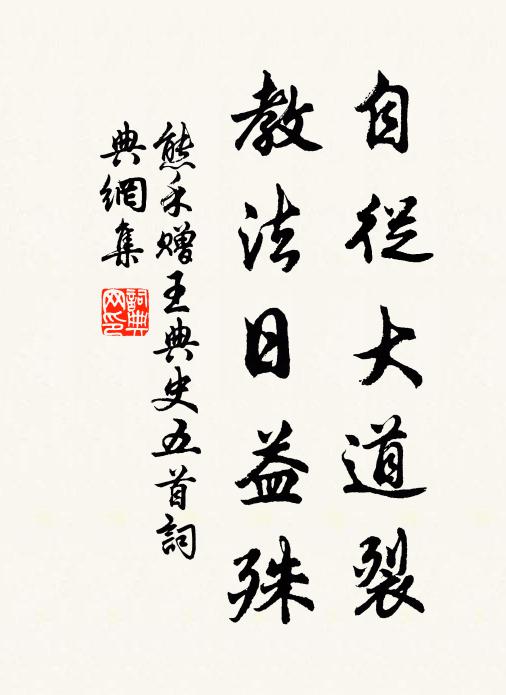 自從大道裂
教法日益殊
熊禾贈王典史五首詞
典網集
詞典網印